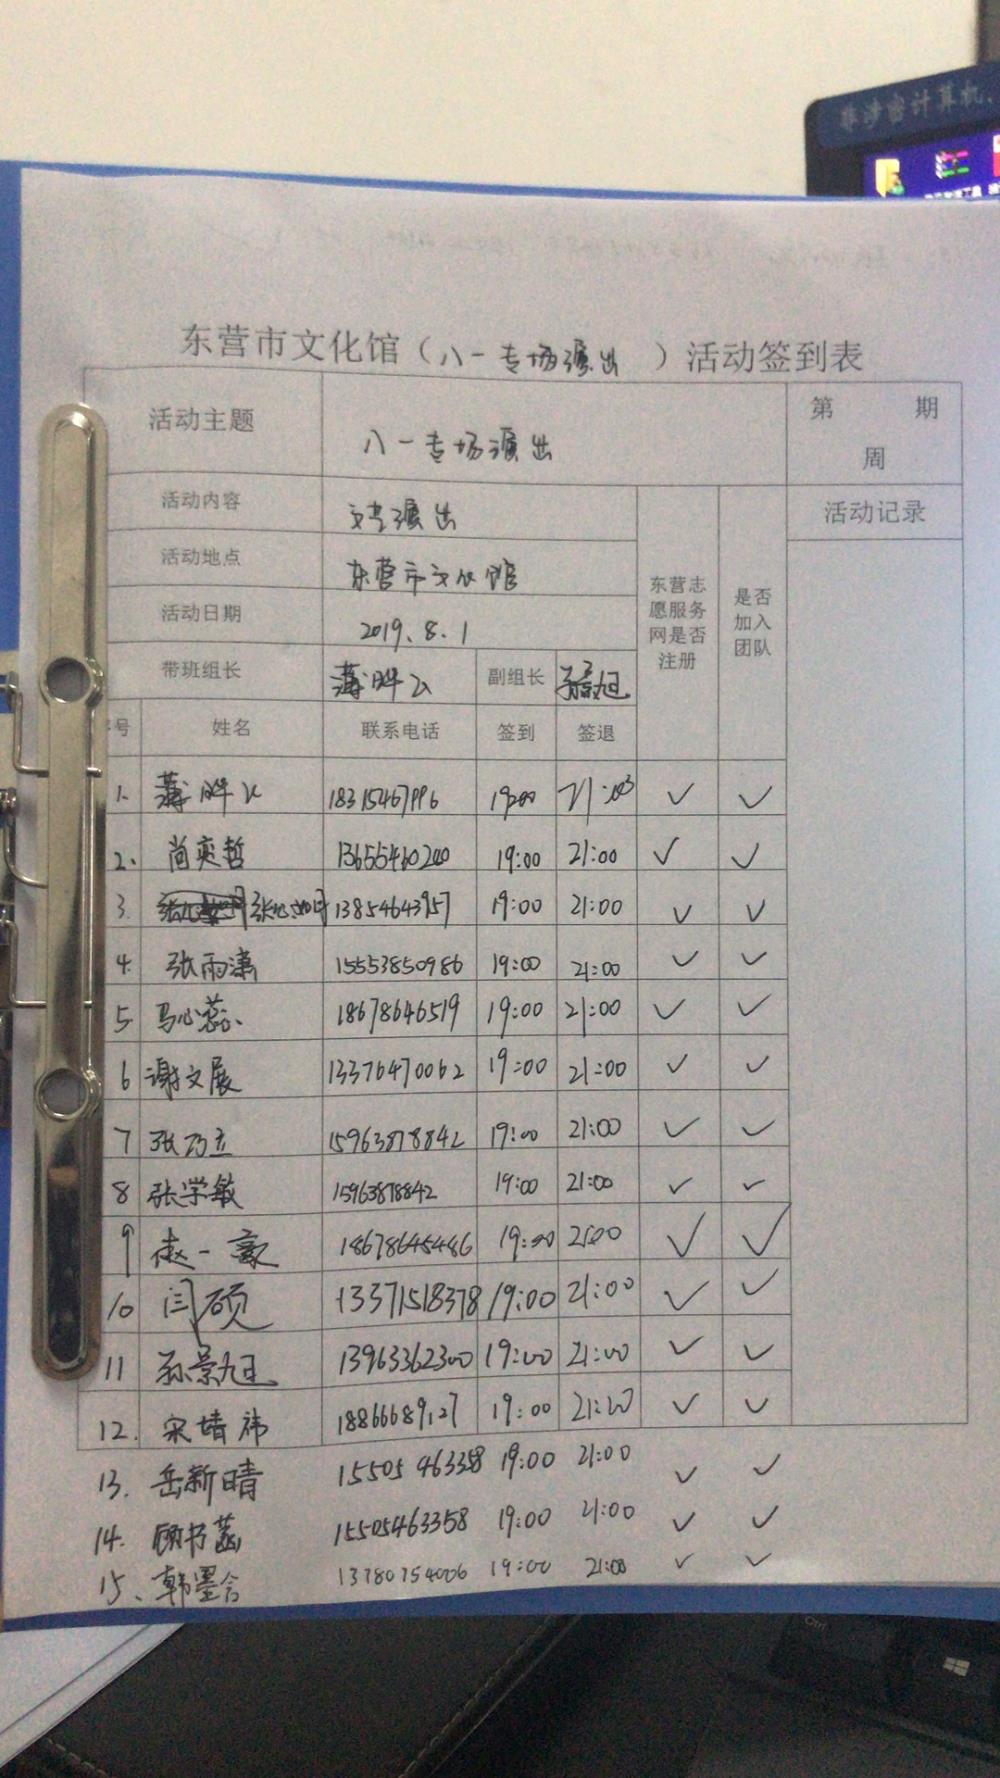 非涉密计算机
东营市文化馆（八一专场演出）活动签到表
活动主题 八一专场演出 第 期
周
活动内容 文艺演出 东营志愿服务网是否注册 是否加入团队 活动记录
活动地点 东营市文化馆
活动日期 2019.8.1
带班组长 副组长 孙景旭
号 姓名 联系电话 签到 签退
1. 18315467996 19:00 21:00 ✓ ✓
2. 尚奕哲 13655460200 19:00 21:00 ✓ ✓
3. 13854643957 19:00 21:00 ✓ ✓
4. 张雨潇 15553850986 19:00 21:00 ✓ ✓
5 马心蕊 18678646519 19:00 21:00 ✓ ✓
6 谢文展 13376470062 19:00 21:00 ✓ ✓
7 张乃立 15963878842 19:00 21:00 ✓ ✓
8 张学敏 15963878842 19:00 21:00 ✓ ✓
9 赵一豪 18678645486 19:00 21:00 ✓ ✓
10 闫硕 13371518378 19:00 21:00 ✓ ✓
11 孙景旭 13963362300 19:00 21:00 ✓ ✓
12. 宋靖祎 18866689127 19:00 21:00 ✓ ✓
13. 岳新晴 15505463358 19:00 21:00 ✓ ✓
14. 顾书菡 15505463358 19:00 21:00 ✓ ✓
15、韩墨含 13780754006 19:00 21:00 ✓ ✓
Ctrl